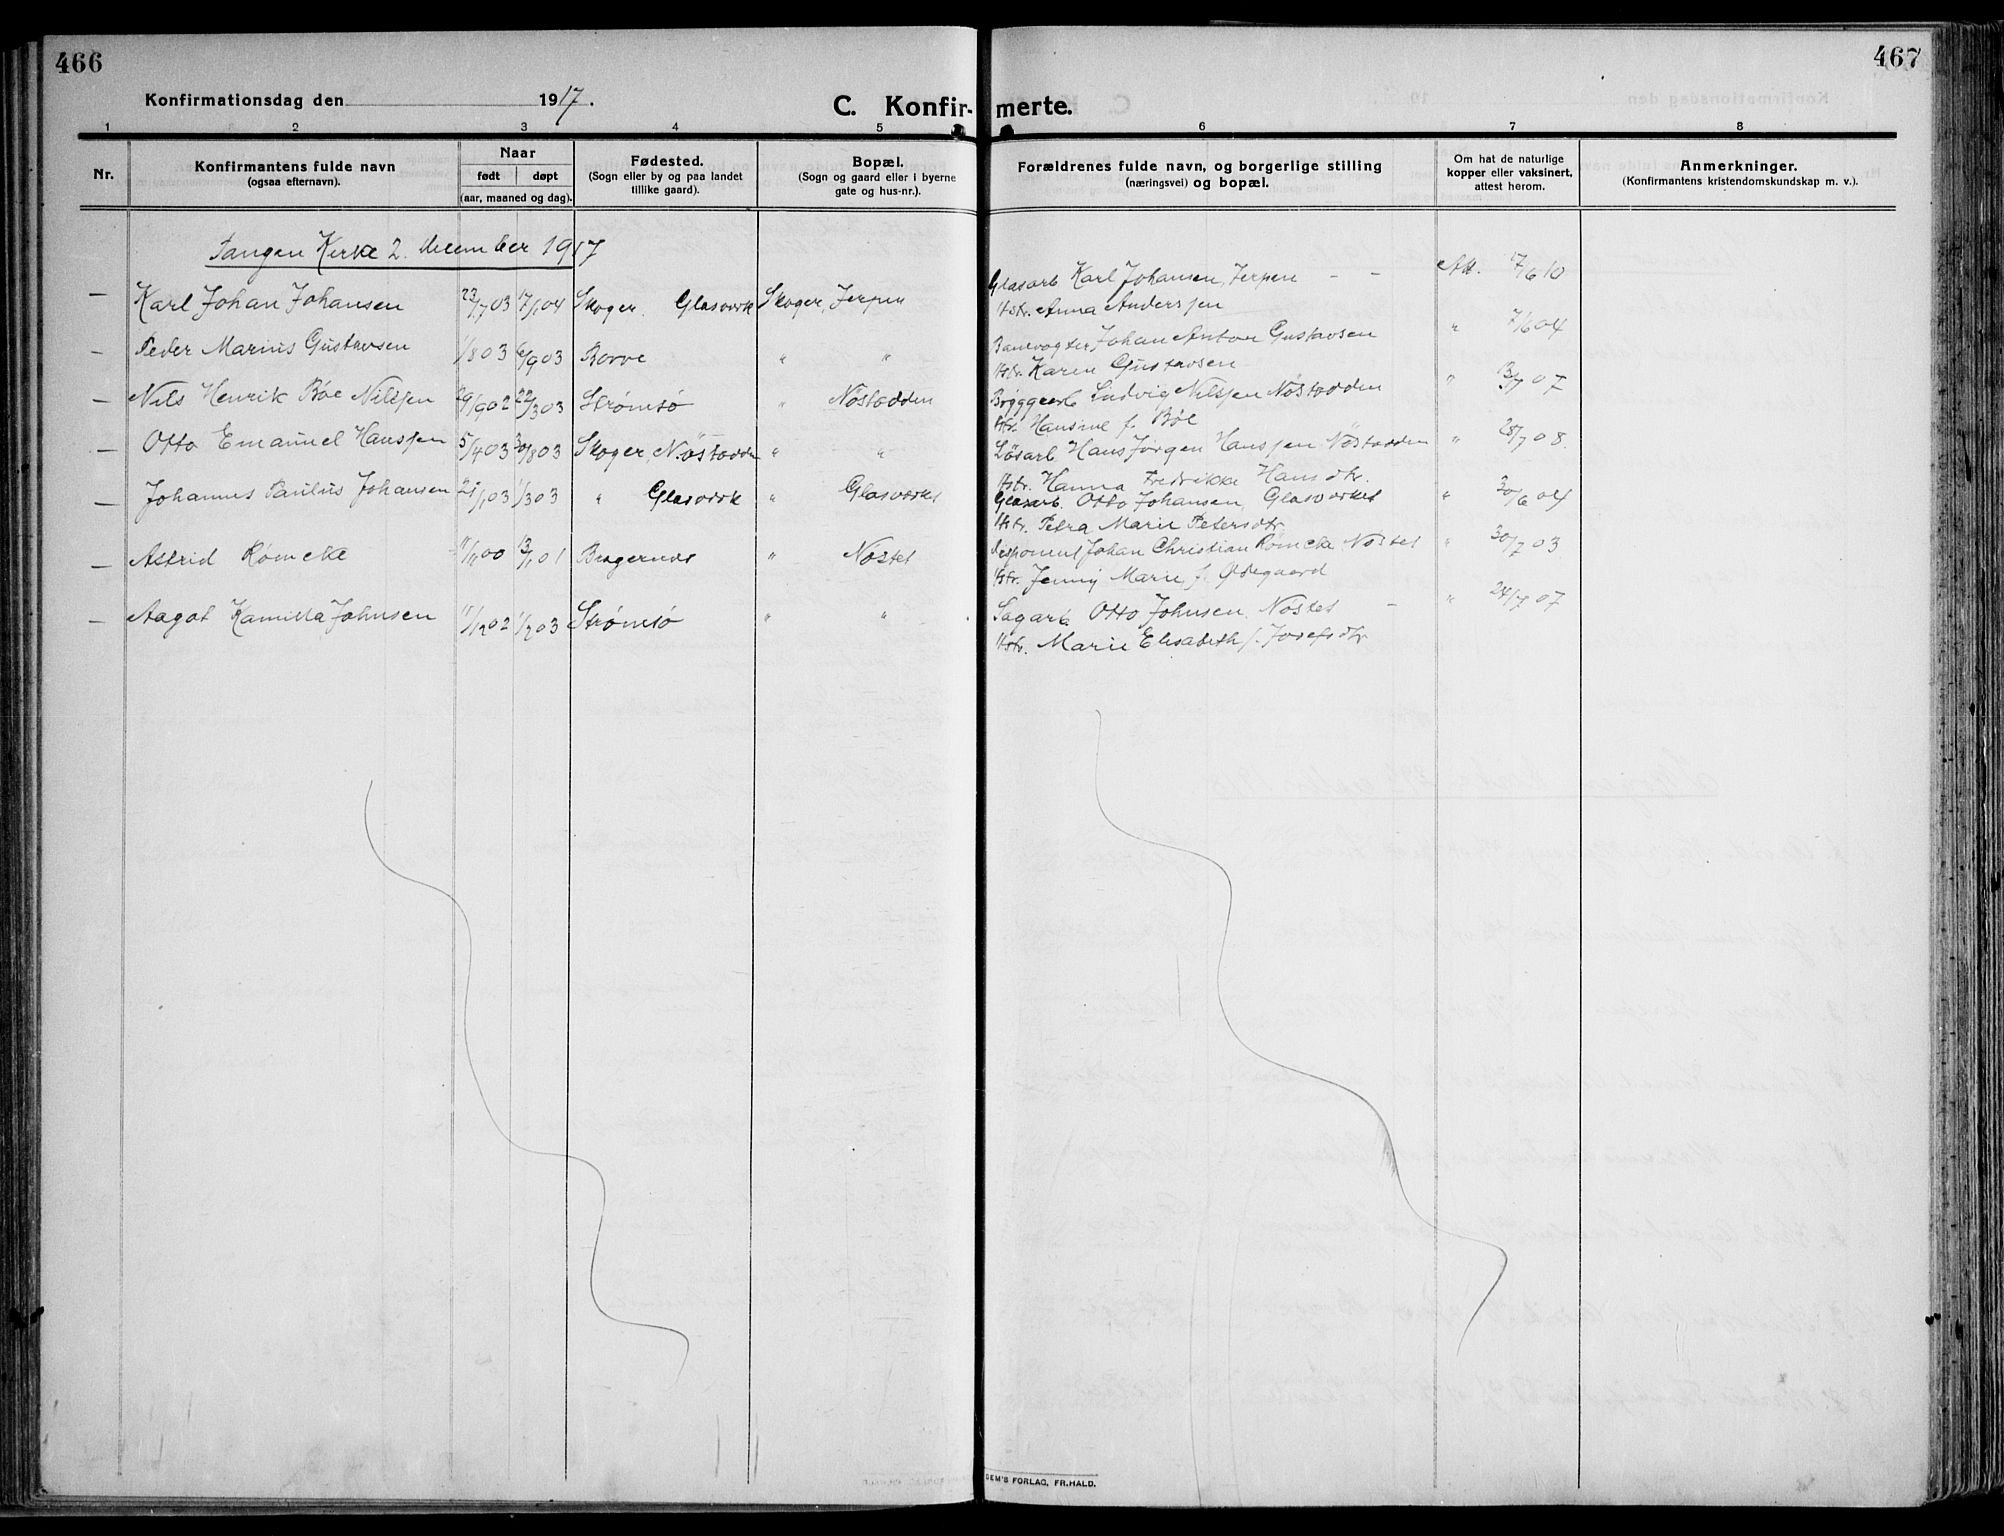 466
467
Konfirmationsdag den 1917.
C. Konfirmerte.
1 2 3 4 5 6 7 8
Nr.
Konfirmantens fulde navn
(ogsaa efternavn).
Naar
født døpt
(aar, maaned og dag).
Fødested.
(Sogn eller by og paa landet
tillike gaard).
Bopæl.
(Sogn og gaard eller i byerne
gate og hus-nr.).
Forældrenes fulde navn, og borgerlige stilling
(næringsvei) og bopæl.
Om hat de naturlige
kopper eller vaksinert,
attest herom.
Anmerkninger.
(Konfirmantens kristendomskundskap m. v.).
Tangen Kirke 2. december 1917
— Karl Johan Johansen 23/7 03 17/1 04 Skoger Glasverk Skoger, Jerpen
Glasarb Karl Johansen, Jerpen - - Att. 17/6 10
Hstr. Anna Anderssen
— Peder Marius Gustavsen 1/8 03 6/9 03 Borre " "
Banevogter Johan Anton Gustavsen " 7/6 04
Hstr. Karen Gustavsen
— Nils Henrik Bøe Nilssen 29/9 02 22/3 03 Strømsø " Nøstodden
Bryggearb Ludvig Nilssen Nøstodden " 13/7 07
Hstr. Hansine f. Bøe
— Otto Emanuel Hanssen 5/4 03 30/8 03 Skoger, Nøstodden " "
Løsarb. Hans Jørgen Hanssen Nøstodden " 28/7 08.
Hstr. Hanna Fredrikke Hansdtr.
— Johannes Paulus Johansen 21/1 03 1/3 03 " Glasverk " Glasverket
Glasarb. Otto Johansen, Glasverket " 30/6 04
Hstr. Petra Marie Petersdtr.
— Astrid Rømcke 13/1 01 Bragernes " Nøstet
Disponent Johan Christian Rømcke, Nøstet " 30/7 03
Hstr. Jenny Marie f. Ødegaard
— Aagot Kamilla Johnsen 11/12 02 1/2 03 Strømsø " "
Sagarb. Otto Johnsen. Nøstet - " 24/7 07
Hstr. Marie Elisabeth f. Josefsdtr
DEM'S FORLAG, FR. HALD.